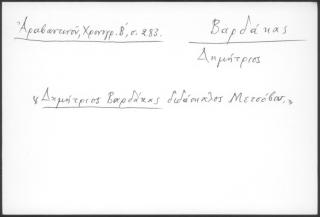 Ἀραβαντινοῦ, Χρονογρ. Β', σ. 283.
Βαρδάκας
Δημήτριος
« Δημήτριος Βαρδάκας διδάσκαλος Μετσόβου, »